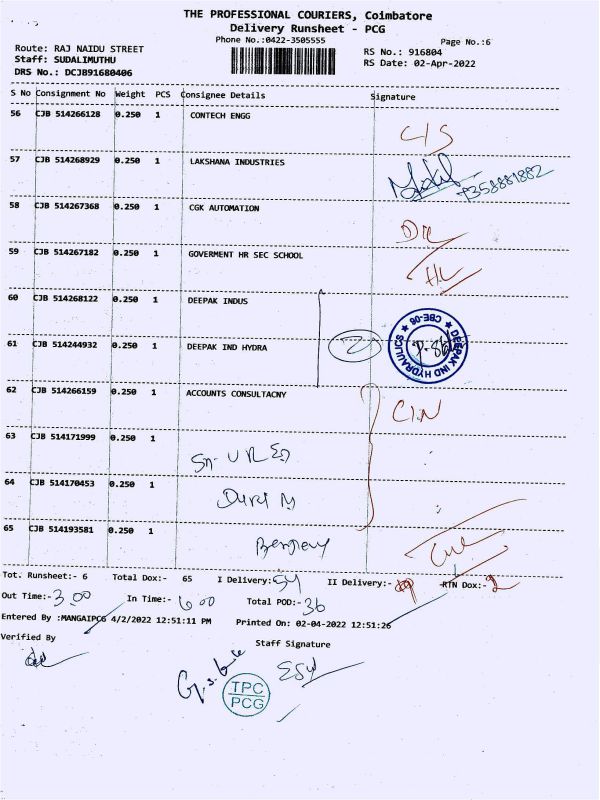 THE PROFESSIONAL COURIERS, Coimbatore
Delivery Runsheet - PCG
Phone No.:0422-3505555
Page No.:6
Route: RAJ NAIDU STREET
RS No.: 916804
Staff: SUDALIMUTHU
RS Date: 02-Apr-2022
DRS No.: DCJ891680406
S No Consignment No Weight PCS Consignee Details Signature
56 CJB 514266128 0.250 1 CONTECH ENGG
C/S
57 CJB 514268929 0.250 1 LAKSHANA INDUSTRIES
58 CJB 514267368 0.250 1 CGK AUTOMATION
59 CJB 514267182 0.250 1 GOVERMENT HR SEC SCHOOL
60 CJB 514268122 0.250 1 DEEPAK INDUS
61 CJB 514244932 0.250 1 DEEPAK IND HYDRA
2
DEEPAK IND HYDRAULICS ★ CBE-06 ★
62 CJB 514266159 0.250 1 ACCOUNTS CONSULTACNY
63 CJB 514171999 0.250 1
64 CJB 514170453 0.250 1
65 CJB 514193581 0.250 1
Tot. Runsheet:- 6 Total Dox:- 65 I Delivery:- 54 II Delivery:- RTN Dox:- 2
Out Time:- 3.00 In Time:- 6.00 Total POD:- 36
Entered By :MANGAIPCG 4/2/2022 12:51:11 PM Printed On: 02-04-2022 12:51:26
Verified By
Staff Signature
TPC
PCG